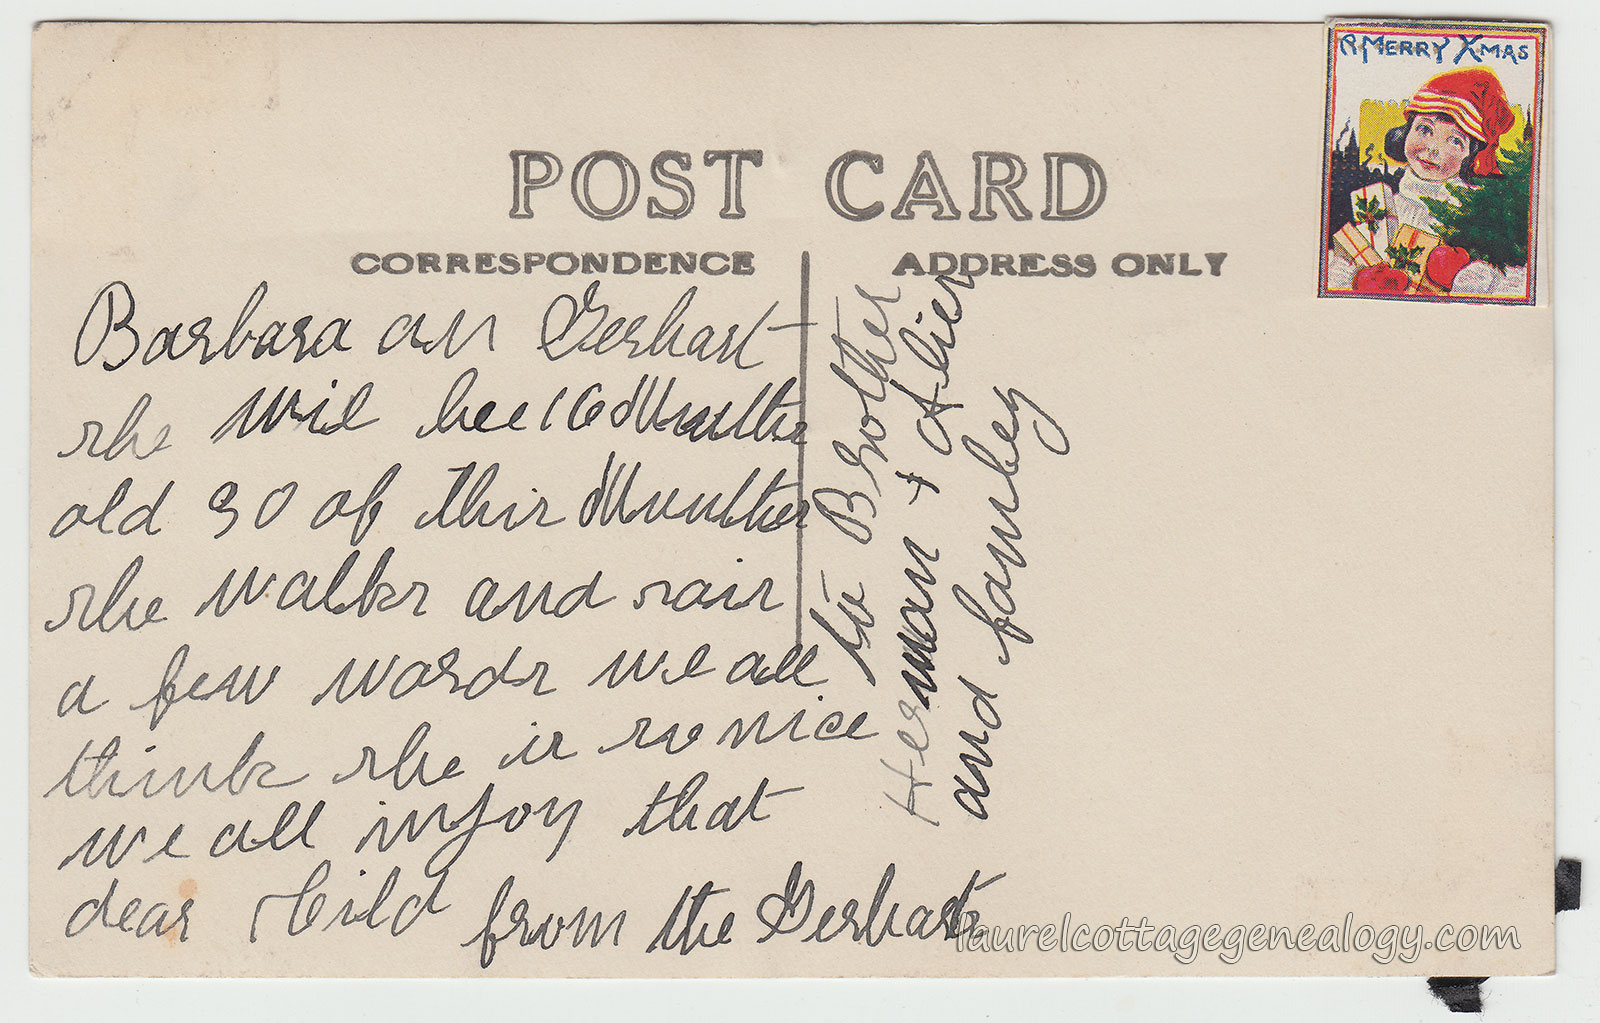 A MERRY XMAS
POST CARD
CORRESPONDENCE
ADDRESS ONLY
Barbara an Gerhart
she wil bee 16 Munths
old 30 of this Munthes
she walks and sais
a few words we all
think she is so nice
we all injoy that
dear Cild from the Gerharts
to Brother
Herman + Alies
and familey
laurelcottagegenealogy.com